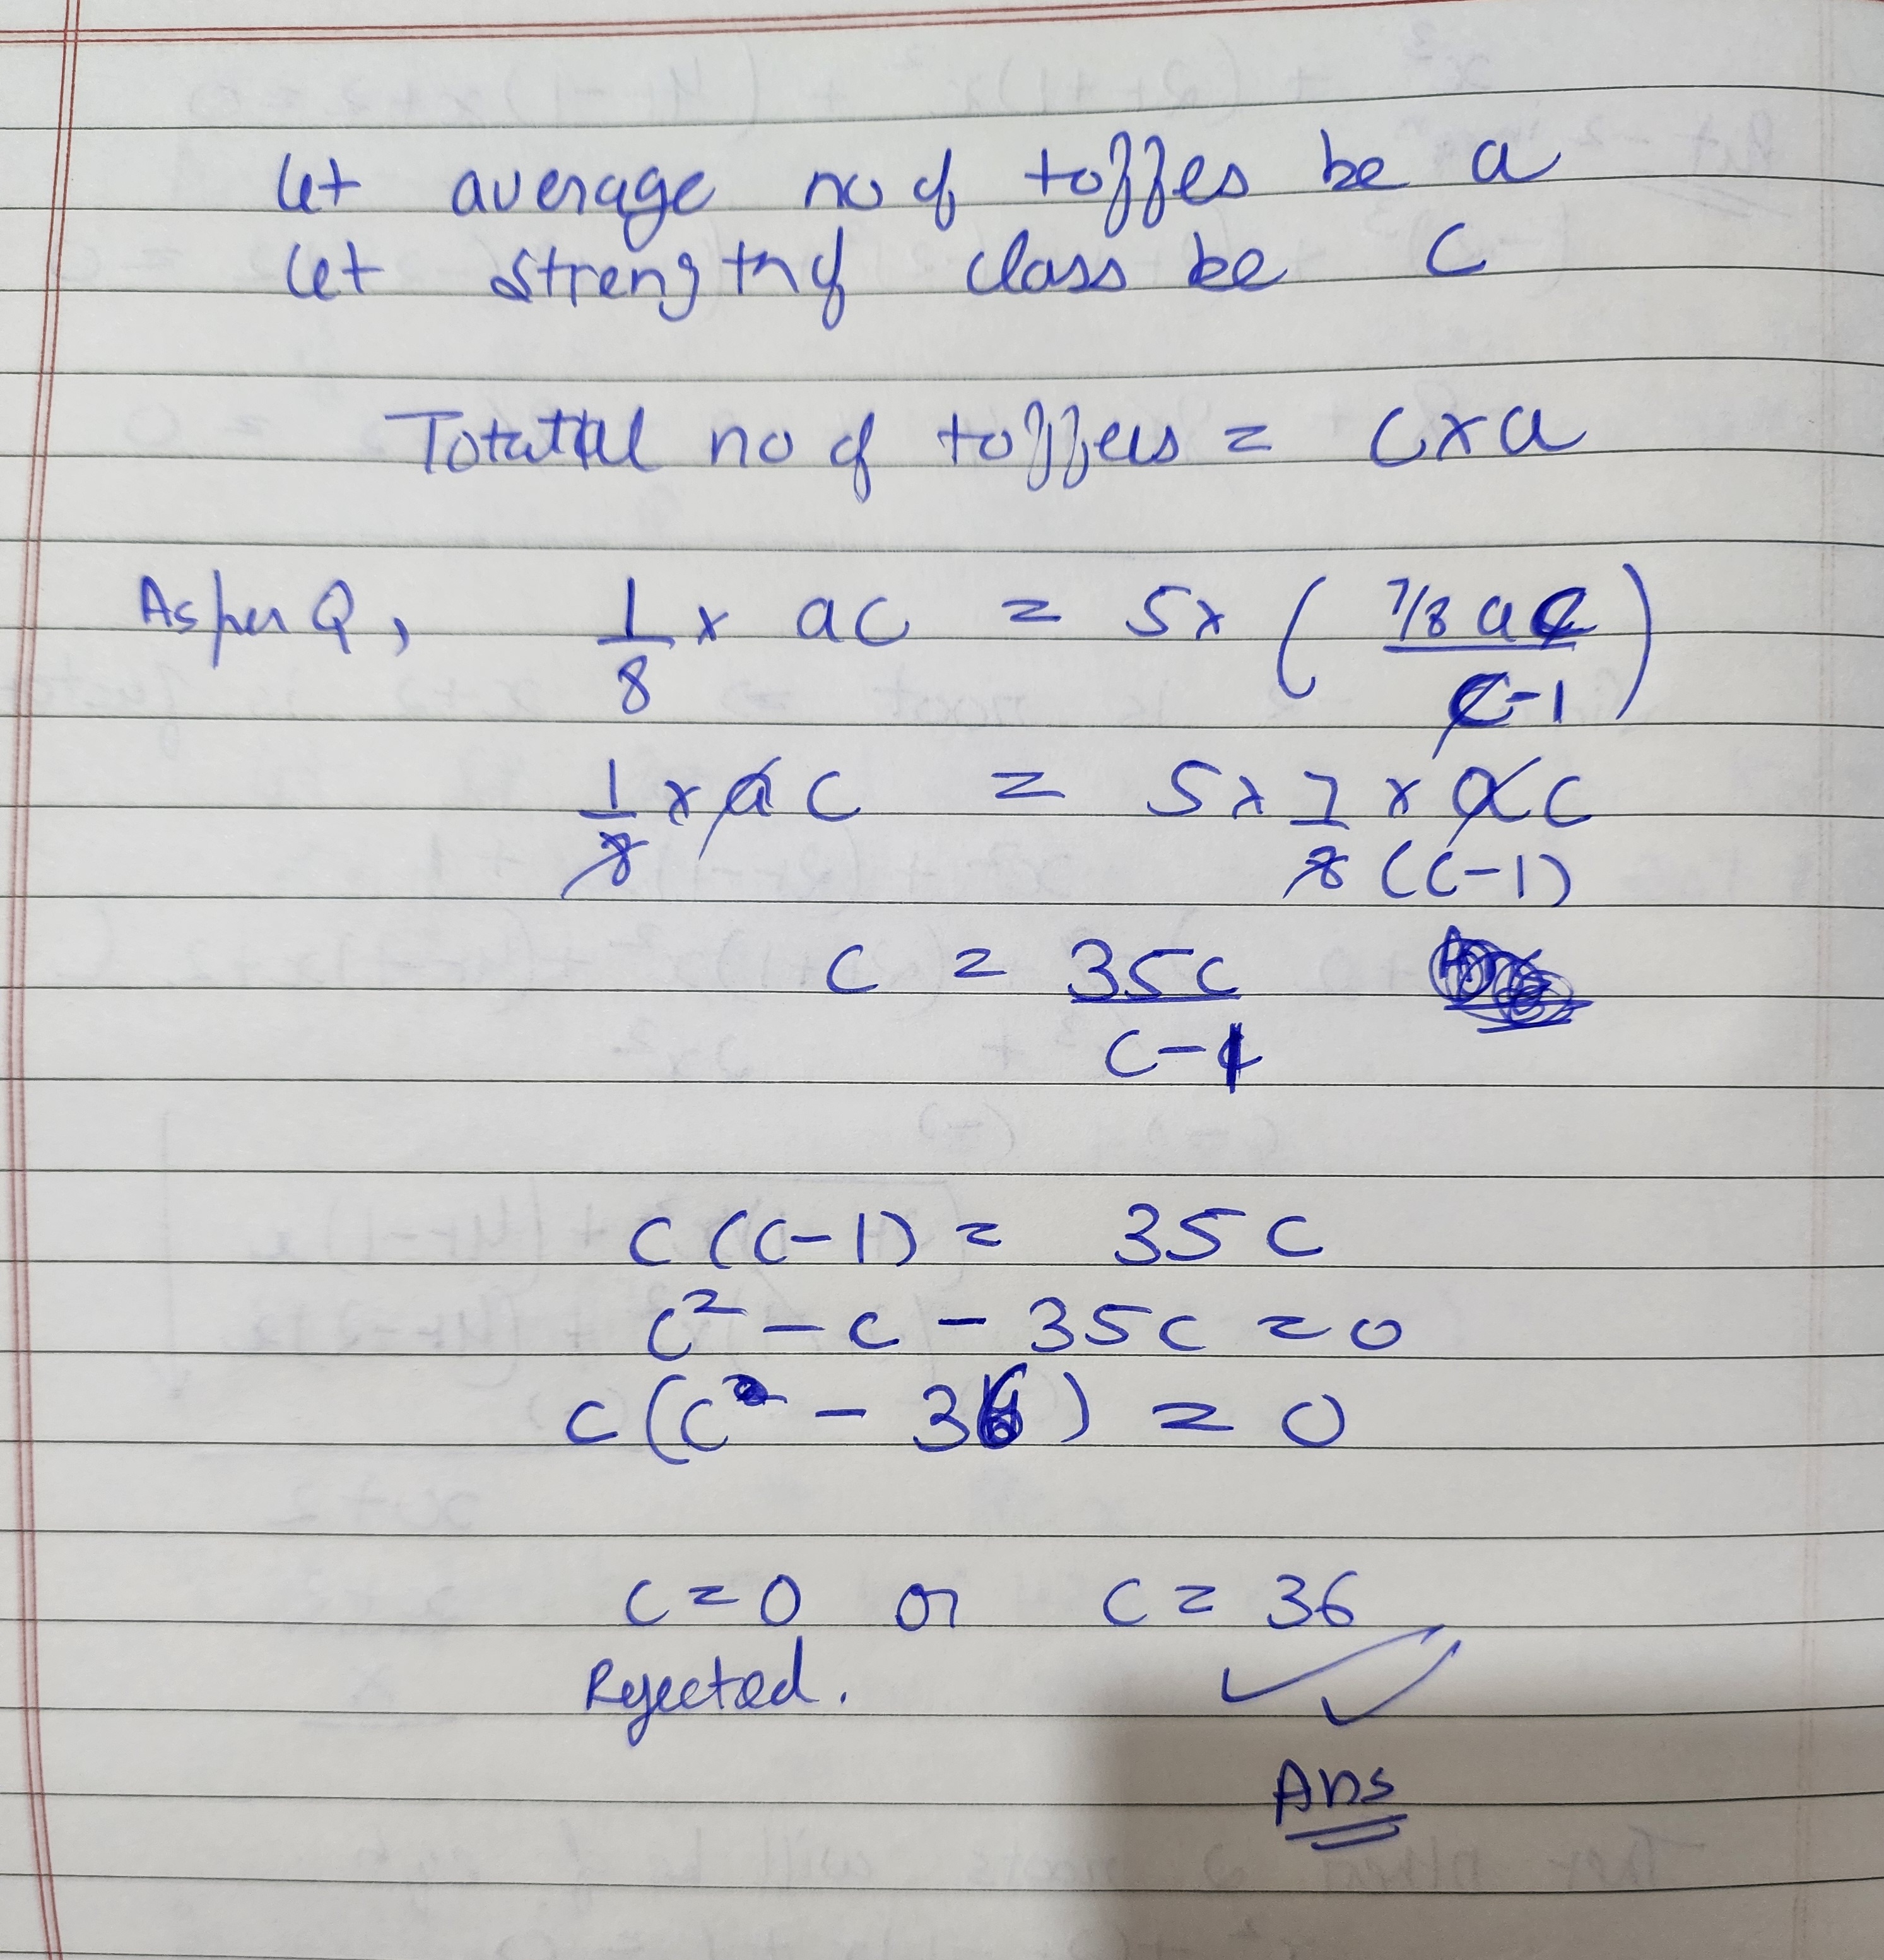 let average no of toffes be a
let strength of class be C
Totattal no of toffees = C x a
As per Q, 1/8 x ac = 5 x ( 7/8 ac / c-1 )
1/8 x a c = 5 x 7/8 x a c / (c-1)
c = 35c / c-1
c (c-1) = 35 c
c² - c - 35c = 0
c (c - 36) = 0
c = 0 or c = 36
Rejected.
Ans